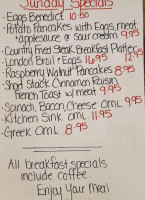 Sunday Specials
- Eggs Benedict 10.50
- Potato Pancakes with Eggs, meat,
+ applesauce or sour cream 9.95
- Country Fried Steak Breakfast Platter 12.95
- London Broil + Eggs 16.95
- Raspberry Walnut Pancakes 8.95
- Short Stack Cinnamon Raisin
French Toast w/ meat 9.95
- Spinach, Bacon, Cheese OML 9.95
- Kitchen Sink OML 11.95
- Greek OML 8.95
All breakfast specials
include coffee.
Enjoy Your Meal